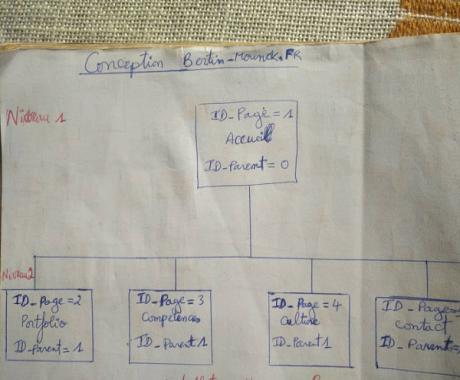 Conception Bertin-Mounok.FR
Niveau 1
ID-Page = 1
Accueil
ID-Parent = 0
Niveau2
ID-Page = 2
Portfolio
ID-Parent = 1
ID-Page = 3
Compétences
ID-Parent 1
ID-Page = 4
Culture
ID-Parent 1
ID-Page=
Contact
ID-Parent=